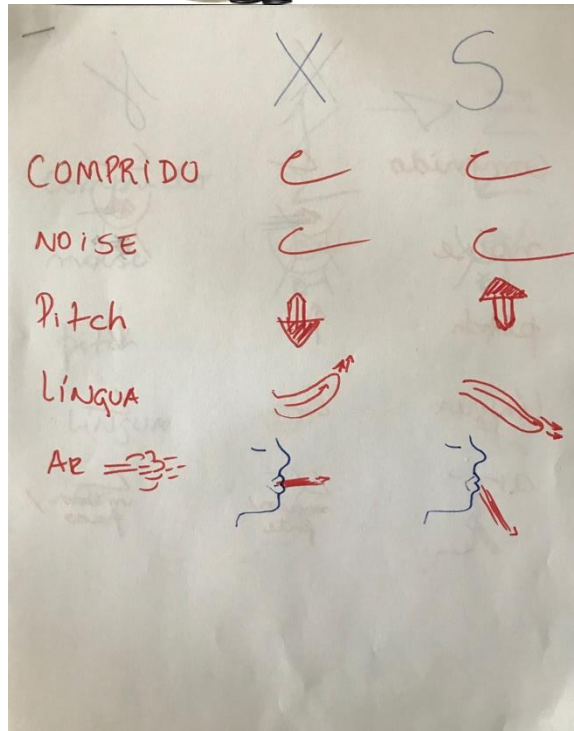 X S
COMPRIDO
NOISE
Pitch
LÍNGUA
AR